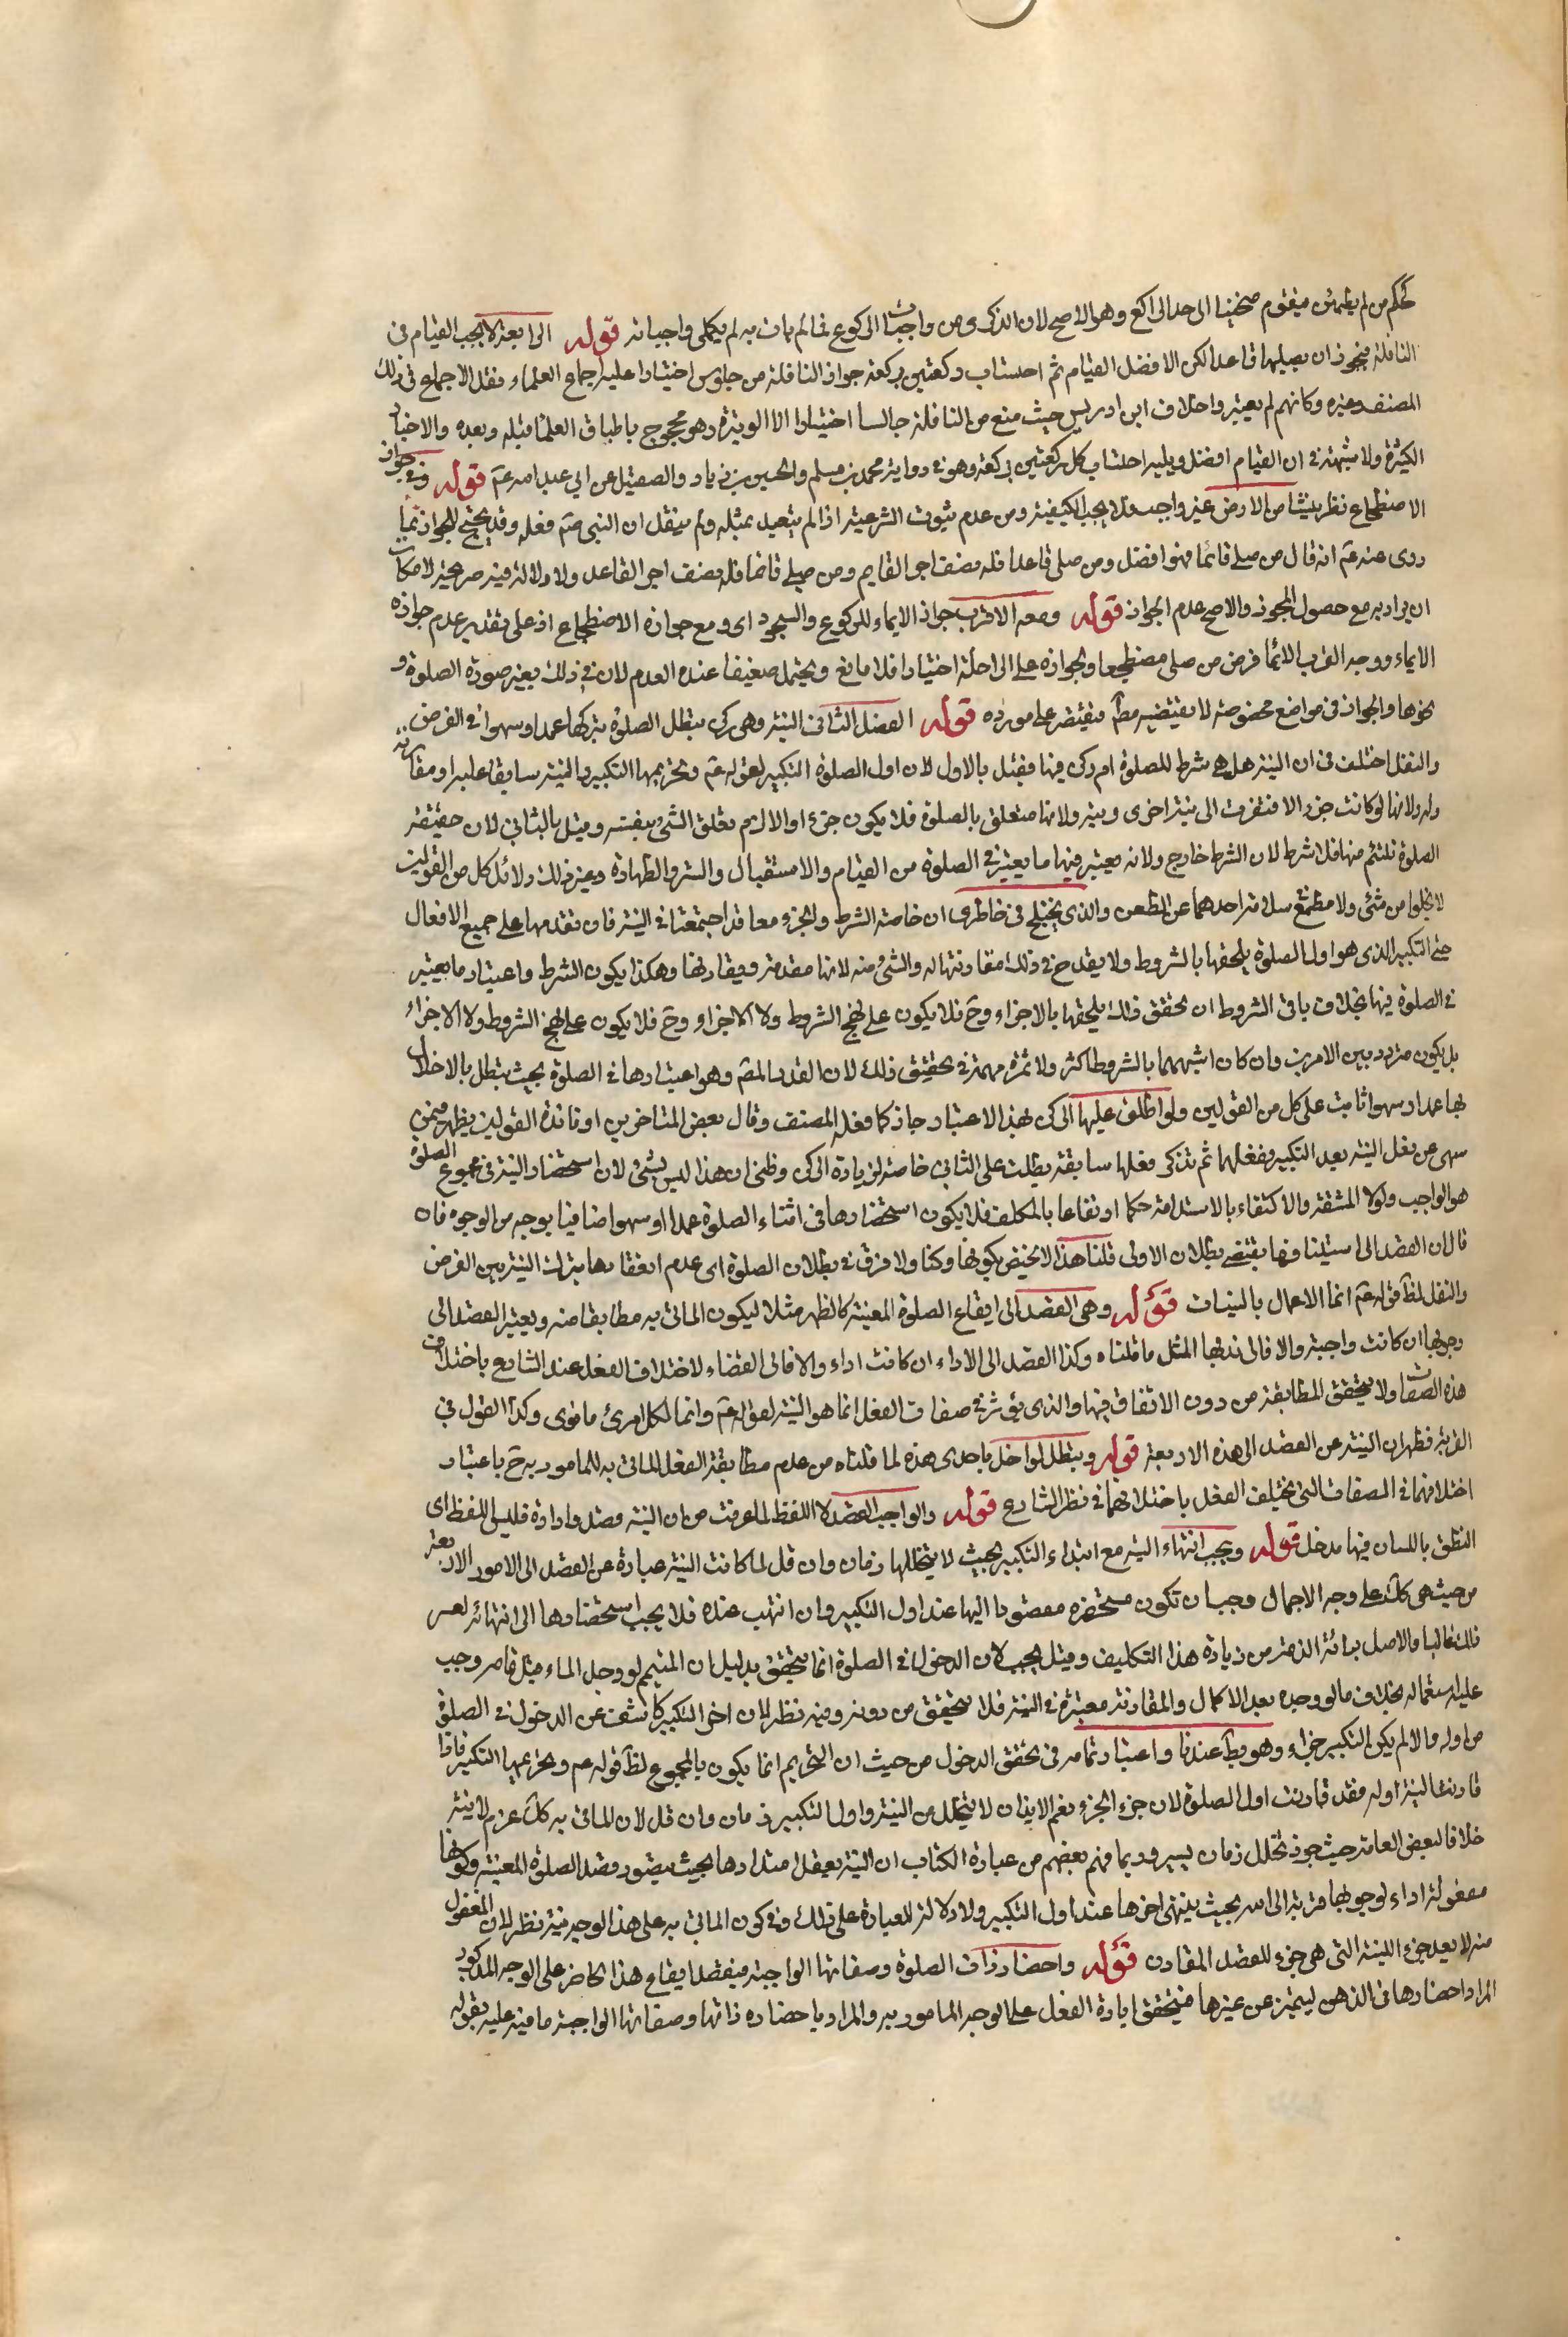 كحكم من لم يطمئن فيقوم منحنيا الى حد الراكع وهو الاصح لان الذكر من واجبات الركوع فما لم يات به لم يكمل واجباته قوله الرابعة لا يجب القيام فى
النافلة فيجوز ان يصليها قاعدا لكن الافضل القيام ثم احتساب ركعتين بركعة جواز النافلة من جلوس اختيارا عليه اجماع العلماء ونقل الاجماع فى ذلك
المصنف وغيره وكانهم لم يعتبروا خلاف ابن ادريس حيث منع من النافلة جالسا اختيارا الا الوتيرة وهو محجوج باطباق العلماء قبله وبعده والاخبار
الكثيرة ولا شبهة فى ان القيام افضل ويليه احتساب كل ركعتين بركعة وهو فى رواية محمد بن مسلم والحسن بن زياد والصيقل عن ابي عبد الله عم قوله وفى جواز
الاضطجاع نظر ينشا من الارض غير واجب فلا يجب الكيفية ومن عدم ثبوت الشرعية اذا لم يتعبد بمثله ولم ينقل ان النبى صم فعله وقد يحتج للجواز بما
روى عنه عم انه قال من صلى قائما فهو افضل ومن صلى قاعدا فله نصف اجر القايم ومن صلى نائما فله نصف اجر القاعد ولا دلالة فيه صريحة لامكان
ان يراد به مع حصول المجوز والاصح عدم الجواز قوله ومعه الاقرب جواز الايماء للركوع والسجود اى ومع جوازه الاضطجاع اذ على تقدير عدم جوازه
الايماء ووجه القرب الايماء فرض من صلى مضطجعا ولجوازه على الراحلة اختيارا فلا مانع ويحتمل ضعيفا عنده العدم لان فى ذلك يغير صورة الصلوة و
نحوها والجواز فى مواضع مخصوصة لا يقتضيه مط فيقتصر على مورده قوله الفصل الثانى النية وهى ركن تبطل الصلوة بتركها عمدا وسهوا فى الفرض
والنفل اختلف فى ان النية هل هى شرط للصلوة ام ركن فيها فقيل بالاول لان اول الصلوة التكبير لقوله عم وتحريمها التكبير والنية سابقة عليه او مقارنة
وله ولانها لو كانت جزءا لافتقرت الى نية اخرى ونية ولانها متعلق بالصلوة فلا يكون جزءا والا لزم تعلق الشئ بنفسه وقيل بالثانى لان حقيقة
الصلوة تلتئم منها فلا شرط لان الشرط خارج ولانه يعتبر فيها ما يعتبر فى الصلوة من القيام والاستقبال والستر والطهارة وغير ذلك ودلائل كل من القولين
لا يخلوا من شئ ولا مطمع سلامة احدهما عن الطعن والذى يختلج فى خاطرى ان خاصة الشرط والجزء معا قد اجتمعتا فى النية فان تقدمها على جميع الافعال
حتى التكبير الذى هو اول الصلوة يلحقها بالشروط ولا يقدح فى ذلك مقارنتها له والشئ منه لانها مقدمة ويقارنها وهكذا يكون الشرط واعتبار ما يعتبر
فى الصلوة فيها بخلاف باقى الشروط ان تحقق ذلك يلحقها بالاجزاء وح فلا يكون على نهج الشروط ولا الاجزاء وح فلا يكون على نهج الشروط ولا الاجزاء
بل يكون مترددة بين الامرين وان كان اشبههما بالشروط اكثر ولا ثمرة مهمة فى تحقيق ذلك لان القدر المهم وهو اعتبارها فى الصلوة بحيث تبطل بالاخلال
بها عمدا وسهوا ثابت على كل من القولين ولو اطلق عليها الركن بهذا الاعتبار جاز كما فعله المصنف وقال بعض المتاخرين او فائدة القولين يظهر فيمن
سهى عن فعل النية بعد التكبير ففعلها ثم تذكر فعلها سابقة بطلت على الثانى خاصة لزيادة الركن وظنى ان هذا ليس بشئ لان استحضار النية فى مجموع الصلوة
هو الواجب ولولا المشقة والاكتفاء بالاستدامة حكما ارتفاعا بالمكلف فلا يكون استحضارها فى اثناء الصلوة عمدا او سهوا منافيا بوجه من الوجوه فان
قال ان القصد الى استينافها يقتضى بطلان الاولى قلنا هذا لا يختص بكونها ركنا ولا فرق فى بطلان الصلوة اى عدم انعقادها بترك النية بين الفرض
والنفل لظ قوله عم انما الاعمال بالنيات قوله وهى القصد الى ايقاع الصلوة المعينة كالظهر مثلا ليكون الماتى به مطابقا منه ويعتبر القصد الى
وجوبها ان كانت واجبة والا فالى ندبها المثل ما قلناه وكذا القصد الى الاداء ان كانت اداء والا فالى القضاء لاختلاف الفعل عند الشارع باختلاف
هذه الصفات ولا يتحقق المطابقة من دون الاتفاق فيها والذى يؤثر فى صفات الفعل انما هو النية لقوله عم وانما لكل امرئ ما نوى وكذا القول فى
القربة فظهر ان النية عن القصد الى هذه الاربعة قوله وتبطل لو اخل باحدى هذه لما قلناه من عدم مطابقة الفعل الماتى به للمامور به ح باعتبار
اختلافهما فى الصفات التى يختلف الفعل باختلافهما فى نظر الشارع قوله والواجب القصد لا اللفظ لما عرفت من ان النية قصد وارادة فليس للفظ اى
النطق باللسان فيها مدخل قوله ويجب انتهاء النية مع ابتداء التكبير بحيث لا يتخللها زمان وان قل لما كانت النية عبارة عن القصد الى الامور الاربعة
من حيث هى كك على وجه الاجمال وجب ان تكون مستحضرة مقصودا اليها عند اول التكبير وان انتهت عنده فلا يجب استحضارها الى انتهائه لعسر
ذلك غالبا والاصل برائة الذمة من زيادة هذا التكليف وقيل يجب لان الدخول فى الصلوة انما يتحقق بدليل ان المتيمم لو وجد الماء قبل تمامه وجب
عليه استعماله بخلاف ما لو وجده بعد الاكمال والمقارنة معتبرة فى النية فلا يتحقق من دونه وفيه نظر لان اخر التكبير كاشف عن الدخول فى الصلوة
من اوله والا لم يكن التكبير جزءا وهو بط عندنا واعتبار تمامه فى تحقق الدخول من حيث ان التحريم انما يكون بالمجموع لظ قوله عم وتحريمها التكبير فاذا
قارنت النية اوله فقد قارنت اول الصلوة لان جزء الجزء نعم الا بد ان لا يتخلل بين النية واول التكبير زمان وان قل لان الماتى به كك عزم لا نية
خلافا لبعض العامة حيث جوز تخلل زمان يسير وربما فهم بعضهم من عبارة الكتاب ان النية يعقل امتدادها بحيث يتصور قصد الصلوة المعينة وكونها
مفعولة اداء لوجوبها قربة الى الله بحيث ينتهى اخرها عند اول التكبير ولا دلالة للعبارة على ذلك وفى كون الماتى به على هذا الوجه نية نظر لان المفعول
منه لا يعد جزء النية التى هى جزء للقصد المقارن قوله واحضار ذات الصلوة وصفاتها الواجبة فيقصد ايقاع هذا الحاضر على الوجه المذكور
المراد احضارها فى الذهن ليميز عن غيرها فيتحقق ارادة الفعل على الوجه المامور به والمراد باحضاره ذاتها وصفاتها الواجبة ما فيه عليه بقوله